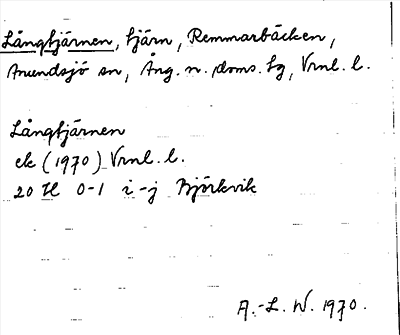 Långtjärnen, tjärn, Remmarbäcken,
Anundsjö sn, Ång. n. doms. tg, Vrnl. l.
Långtjärnen
ek (1970) Vrnl. l.
20 H 0-1 i-j Björkvik
A.-L. W. 1970.